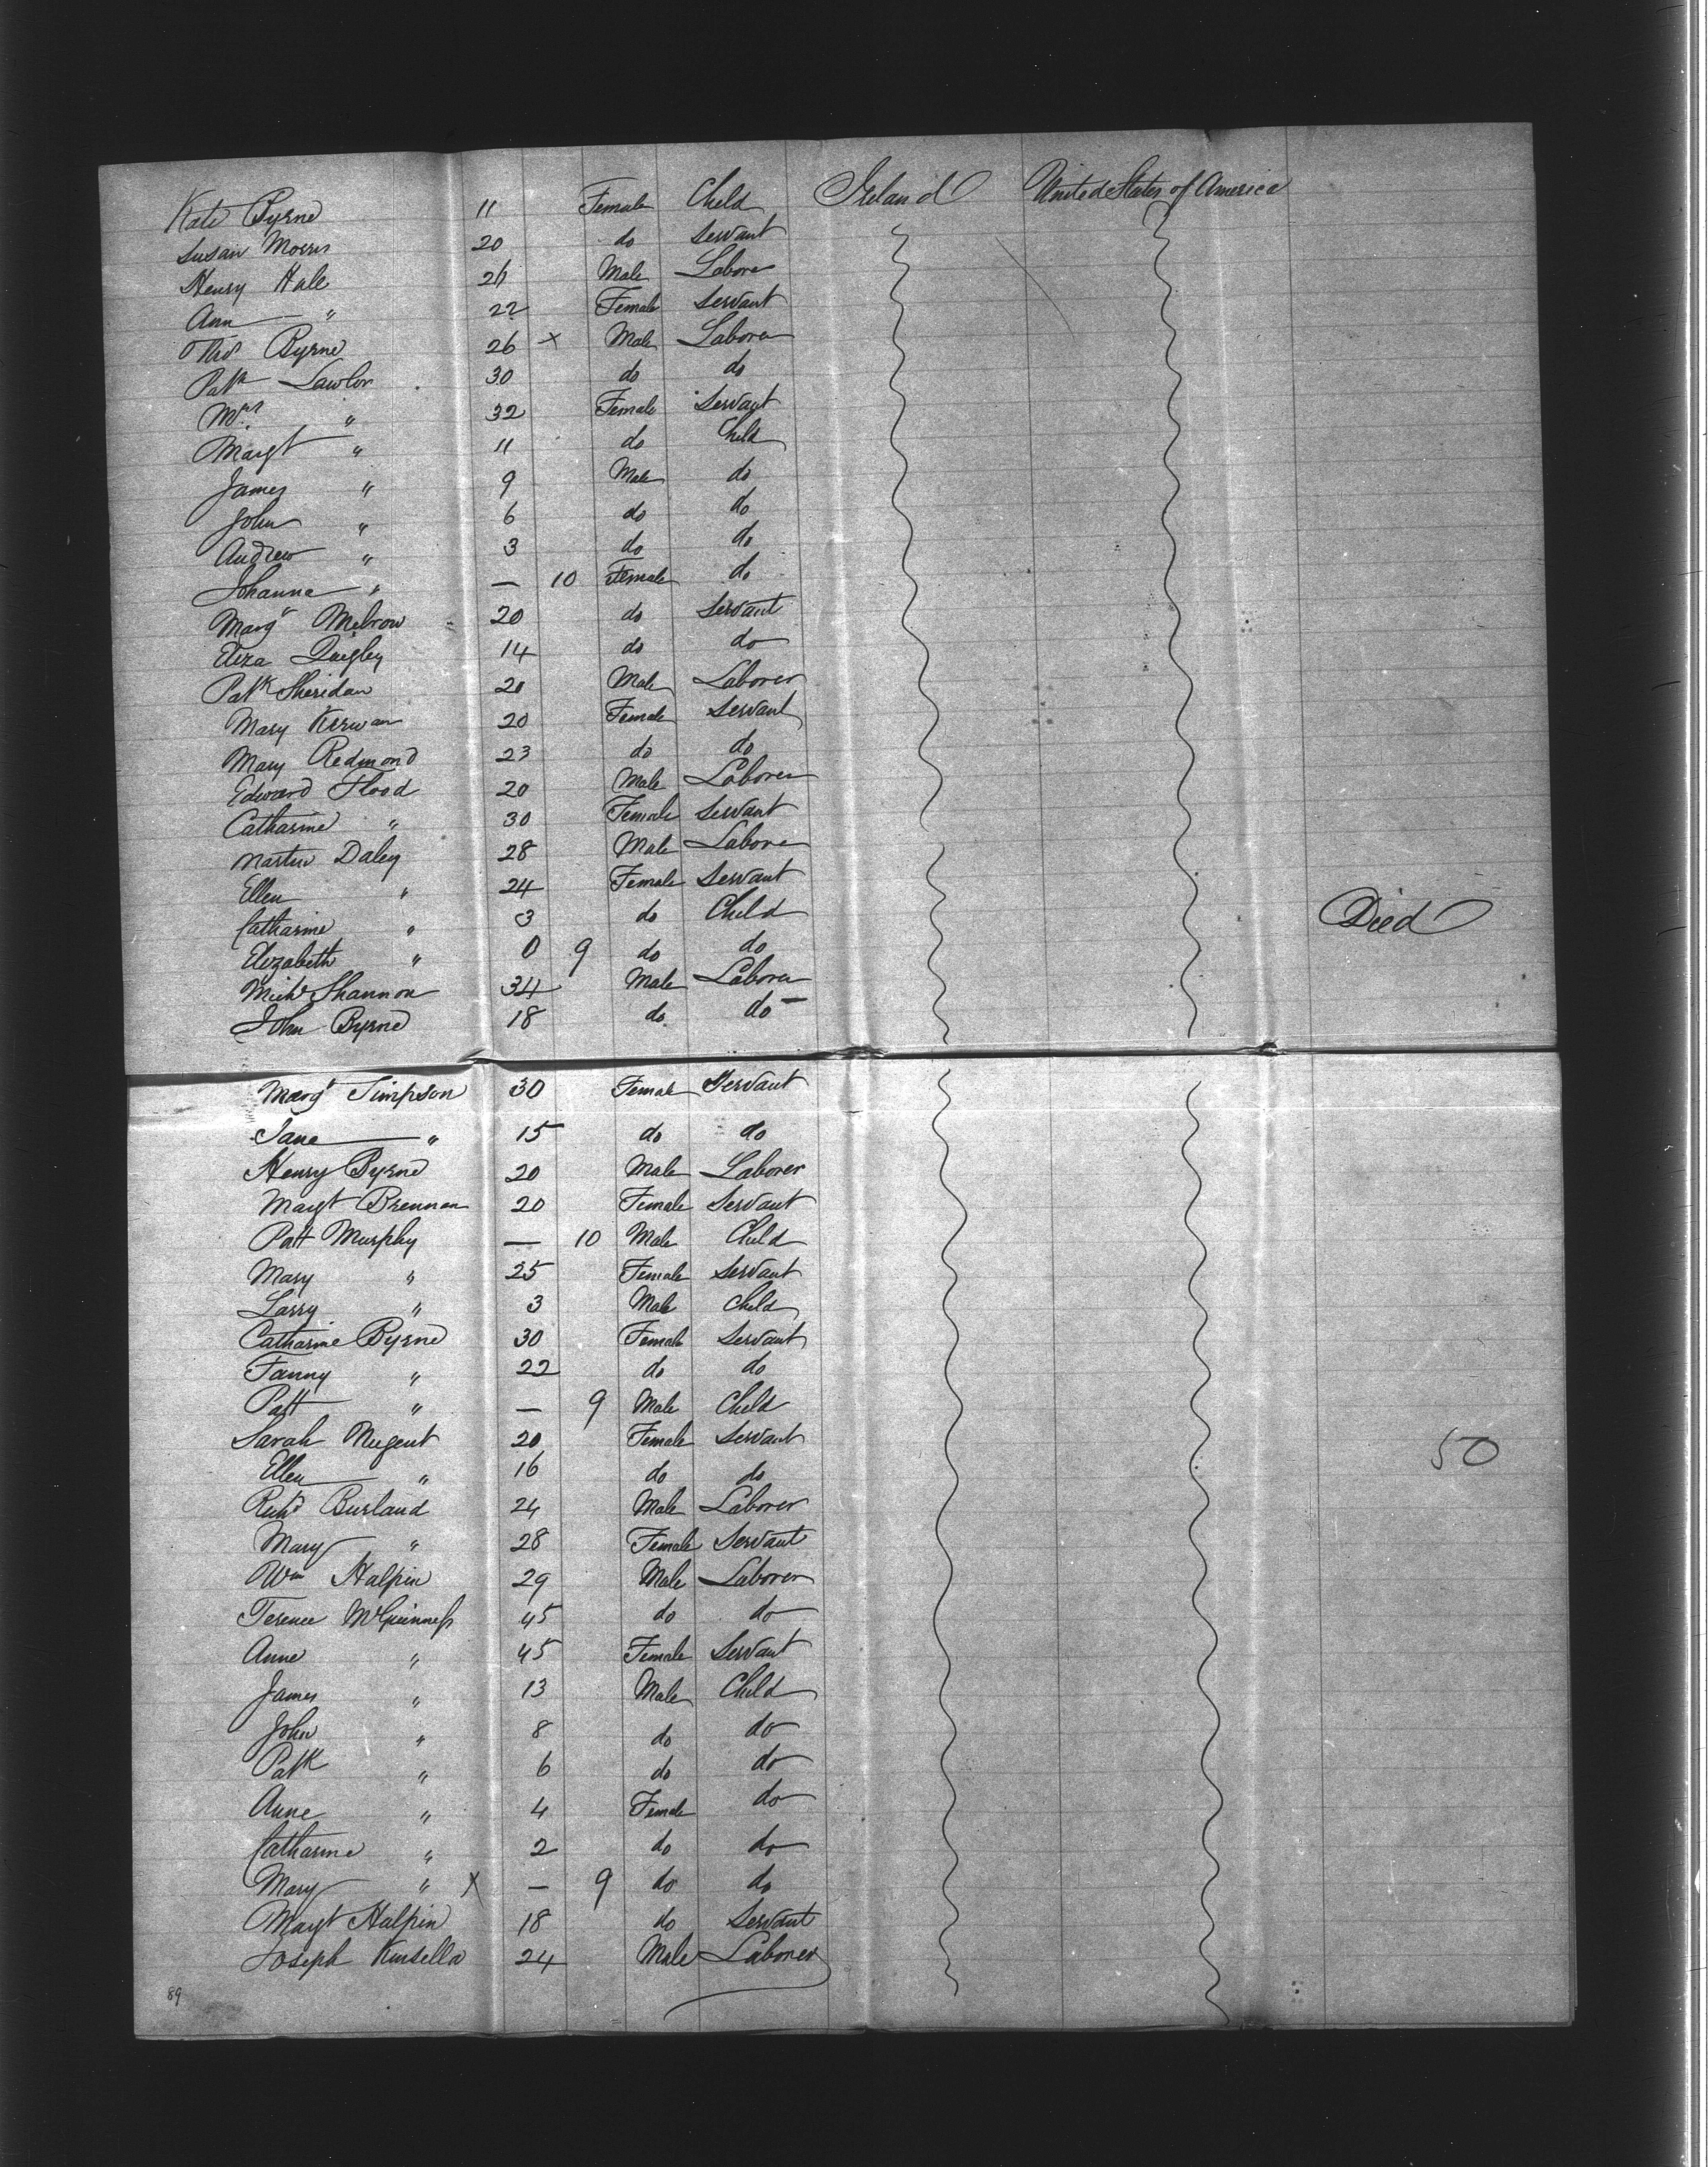 Kate Byrne 11 Female Child Ireland United States of America
Susan Morris 20 do Servant
Henry Hale 26 Male Laborer
Ann " 22 Female Servant
Thos Byrne 26 x Male Laborer
Patk Lawlor 30 do do
Mrs " 32 Female Servant
Margt " 11 do Child
James " 9 Male do
John " 6 do do
Andrew " 3 do do
Johanna " — 10 Female do
Margt 20 do Servant
Eliza Quigley 14 do do
Patk Sheridan 20 Male Laborer
Mary Kerwan 20 Female Servant
Mary Redmond 23 do do
Edward Flood 20 Male Laborer
Catharine " 30 Female Servant
Martin Daley 28 Male Laborer
Ellen " 24 Female Servant
Catharine " 3 do Child Died
Elizabeth " 0 9 do do
Michl Shannon 34 Male Laborer
John Byrne 18 do do
Margt Simpson 30 Female Servant
Jane " 15 do do
Henry Byrne 20 Male Laborer
Margt Brennan 20 Female Servant
Patt Murphy — 10 Male Child
Mary " 25 Female Servant
Larry " 3 Male Child
Catharine Byrne 30 Female Servant
Fanny " 22 do do
Patt " — 9 Male Child
Sarah Nugent 20 Female Servant 50
Ellen " 16 do do
Richd Burland 24 Male Laborer
Mary " 28 Female Servant
Wm Halpin 29 Male Laborer
Terence McGuinness 45 do do
Anne " 45 Female Servant
James " 13 Male Child
John " 8 do do
Patk " 6 do do
Anne " 4 Female do
Catharine " 2 do do
Mary " x — 9 do do
Margt Halpin 18 do Servant
Joseph Kinsella 24 Male Laborer
89